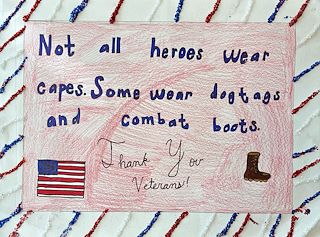 Not all heroes wear
capes. Some wear dogtags
and combat boots.
Thank You
Veterans!